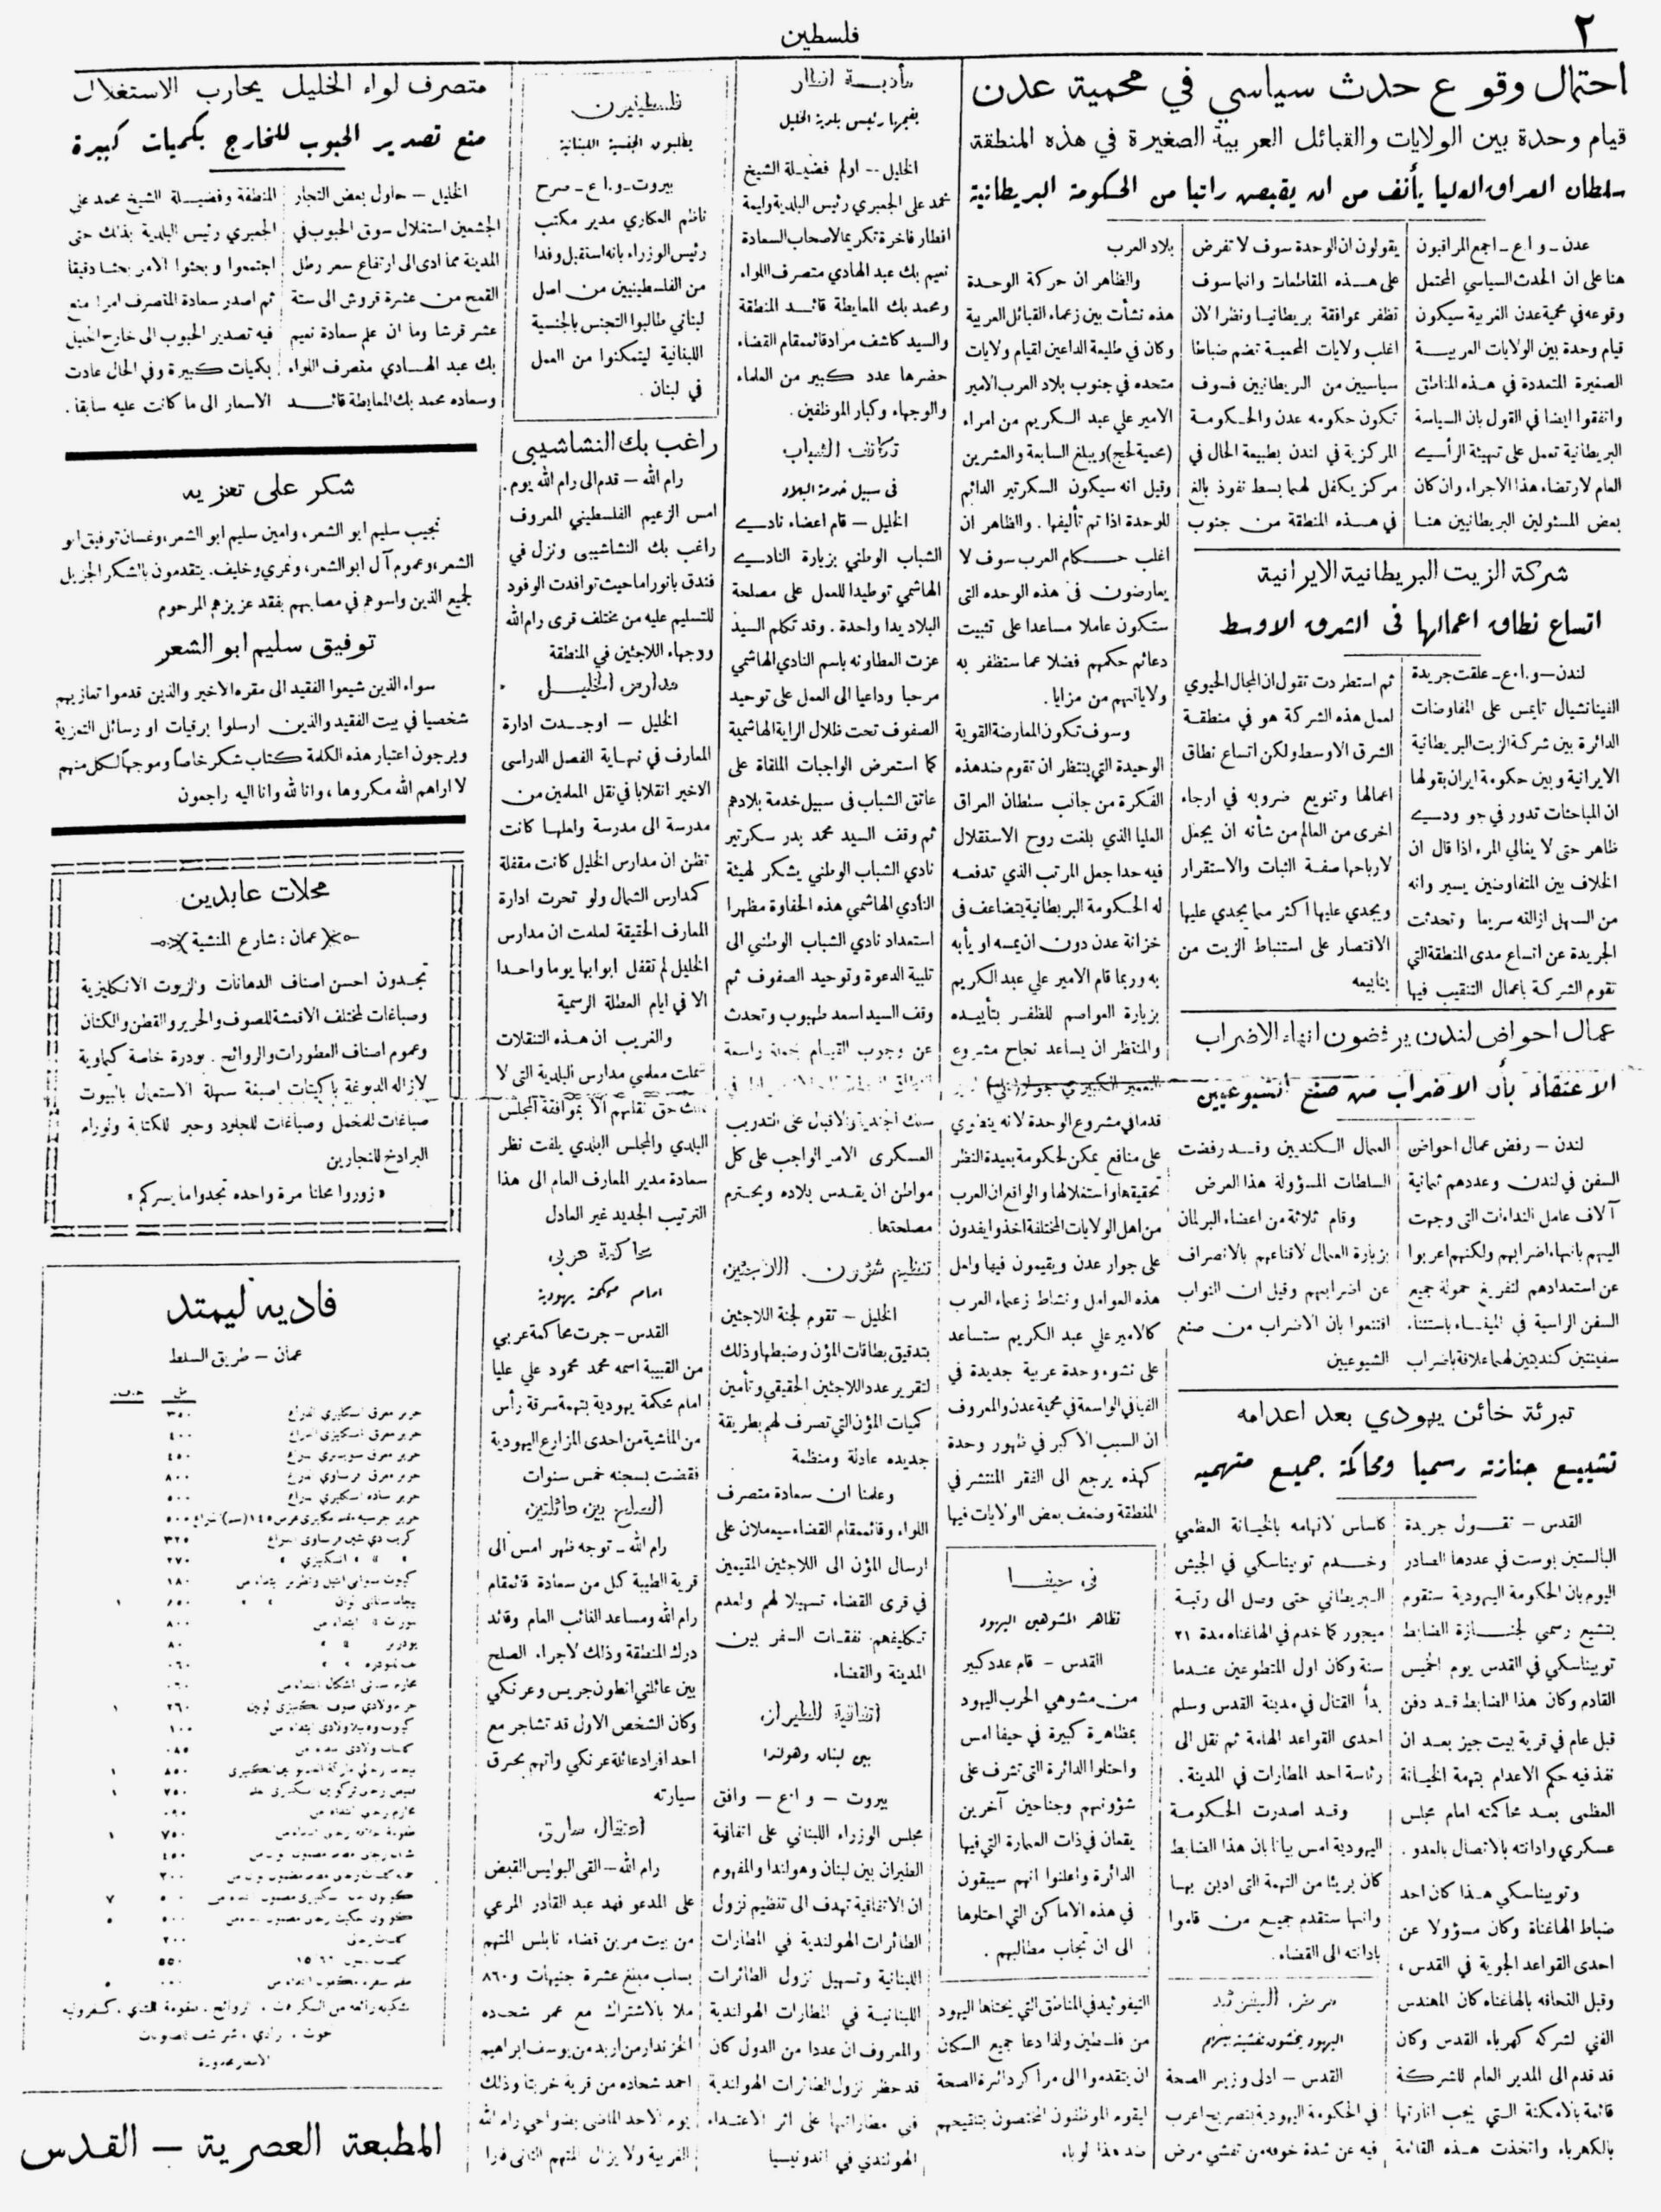 ٢
فلسطين
احتمال وقوع حدث سياسي في محمية عدن
قيام وحدة بين الولايات والقبائل العربية الصغيرة في هذه المنطقة
سلطان العراق العليا يأنف من ان يقبض راتبا من الحكومة البريطانية
عدن ـ و.ا.ع ـ اجمع المراقبون
هنا على ان الحدث السياسي المحتمل
وقوعه في محمية عدن الغربية سيكون
قيام وحدة بين الولايات العربيـــة
الصغيرة المتعددة في هـذه المناطق
واتفقوا ايضا في القول بان السياسة
البريطانية تعمل على تهيئة الرأسي
العام لارتضاء هذا الاجراء وان كان
بعض المسئولين البريطانيين هنـا
يقولون ان الوحدة سوف لا تفرض
على هـــذه المقاطعات وانما سوف
تظفر بموافقة بريطانيـا ونظرا لان
اغلب ولايات المحمية تضم ضباطا
سياسيين من البريطانيين فسوف
تكون حكومه عدن والحكومـة
المركزية في لندن بطبيعة الحال في
مركز يكفل لهما بسط نفوذ بالغ
في هــذه المنطقة من جنوب
بلاد العرب
والظاهر ان حركة الوحـدة
هذه نشأت بين زعماء القبائل العربية
وكان في طليعة الداعين لقيام ولايات
متحده في جنوب بلاد العرب الامير
الامير علي عبد الكريم من امراء
(محمية لحج) ويبلغ السابعة والعشرين
وقيل انه سيكون السكرتير الدائم
للوحدة اذا تم تأليفها . والظاهر ان
اغلب حــكام العرب سوف لا
يعارضون في هذه الوحده التي
ستكون عاملا مساعدا على تثبيت
دعائم حكمهم فضلا عما ستظفر به
ولاياتهم من مزايا .
وسوف تكون المعارضة القوية
الوحيدة التي ينتظر ان تقوم ضد هذه
الفكرة من جانب سلطان العراق
العليا الذي بلغت روح الاستقلال
فيه حدا جعل المرتب الذي تدفعـه
له الحكومة البريطانية يتضاعف في
خزانة عدن دون ان يمسه او يأبه
به وربما قام الامير علي عبد الكريم
بزيارة العواصم للظفـر بتأييـده
والمنتظر ان يساعد نجاح مشروع
قدما في مشروع الوحدة لانه ينطوي
على منافع يمكن لحكومة بعيدة النظر
تحقيقها واستغلالها والواقع ان العرب
من اهل الولايات المختلفة اخذوا يفدون
على جوار عدن ويقيمون فيها ولعل
هذه العوامل ونشاط زعماء العرب
كالامير علي عبد الكريم ستساعد
على نشوء وحدة عربية جديدة في
الفيافي الواسعة في محمية عدن والمعروف
ان السبب الاكبر في ظهور وحدة
كهذه يرجع الى الفقر المنتشر في
المنطقة وضعف بعض الولايات فيها
شركة الزيت البريطانية الايرانية
اتساع نطاق اعمالها في الشرق الاوسط
لندن ـ و.ا.ع ـ علقت جريدة
الفينانشيال تايمس على المفاوضات
الدائرة بين شركة الزيت البريطانية
الايرانية وبين حكومة ايران بقولها
ان المباحثات تدور في جو ودي
ظاهر حتى لا يغالي المرء اذا قال ان
الخلاف بين المتفاوضين يسير وانه
من السهل ازالته سريعا وتحدثت
الجريدة عن اتساع مدى المنطقة التي
تقوم الشركة باعمال التنقيب فيها
ثم استطردت تقول ان المجال الحيوي
لعمل هذه الشركة هو في منطقـة
الشرق الاوسط ولكن اتساع نطاق
اعمالها وتنويع ضروبه في ارجاء
اخرى من العالم من شأنه ان يجعل
لارباحها صفـة الثبات والاستقرار
ويجدي عليها اكثر مما يجدي عليها
الاقتصار على استنباط الزيت من
ينابيعه
عمال احواض لندن يرفضون انهاء الاضراب
الاعتقاد بأن الاضراب من صنع الشيوعيين
لندن ـ رفض عمال احواض
السفن في لندن وعددهم ثمانية
آلاف عامل النداءات التي وجهت
اليهم بانهاء اضرابهم ولكنهم اعربوا
عن استعدادهم لتفريغ حمولة جميع
السفن الراسية في الميناء باستثناء
سفينتين كنديتين لهما علاقة باضراب
العمال الكنديين وقـد رفضت
السلطات المسؤولة هذا العرض
وقام ثلاثة من اعضاء البرلمان
بزيارة العمال لاقناعهم بالانصراف
عن اضرابهم وقيل ان النواب
اقتنعوا بان الاضراب من صنع
الشيوعيين
تبرئة خائن يهودي بعد اعدامه
تشييع جنازته رسميا ومحاكمة جميع متهميه
القدس ـ تقــول جريدة
البالستين بوست في عددها الصادر
اليوم بان الحكومة اليهودية ستقوم
بتشيع رسمي لجنـازة الضابط
توبيناسكي في القدس يوم الخميس
القادم وكان هذا الضابط قـد دفن
قبل عام في قرية بيت جيز بعـد ان
نفذ فيه حكم الاعدام بتهمة الخيـانة
العظمى بعـد محاكمته امام مجلس
عسكري وادانته بالاتصال بالعدو .
وتوبيناسكي هـذا كان احد
ضباط الهاغناة وكان مسؤولا عن
احدى القواعد الجوية في القدس ،
وقبل التحاقه بالهاغناه كان المهندس
الفني لشركه كهرباء القدس وكان
قد قدم الى المدير العام للشركة
قائمة بالامكنة التي يجب انارتها
بالكهرباء واتخذت هـذه القائمة
كاساس لاتهامه بالخيـانة العظمى
وخــدم توبيناسكي في الجيش
البريطاني حتى وصل الى رتبـة
ميجور كما خدم في الهاغناه مدة ٢١
سنة وكان اول المتطوعين عنـدما
بدأ القتال في مدينة القدس وسلم
احدى القواعد الهامة ثم نقل الى
رئاسة احد المطارات في المدينة .
وقـد اصدرت الحكومـة
اليهودية امس بيانا بان هذا الضابط
كان بريئا من التهمة التي ادين بهـا
وانها ستقدم جميـع من قاموا
بادانته الى القضاء .
مرض التيفوئيد
اليهود يخشون تفشيه بينهم
القدس ـ ادلى وزير الصحة
في الحكومة اليهودية بتصريح اعرب
فيه عن شدة خوفه من تفشي مرض
التيفوئيد في المناطق التي يحتلها اليهود
من فلسطين ولذا دعا جميع السكان
ان يتقدموا الى مراكز دائرة الصحة
ليقوم الموظفون المختصون بتلقيحهم
ضد هذا لوباء
في حيفـا
تظاهر المشوهين اليهود
القدس ـ قام عدد كبير
من مشوهي الحرب اليهود
بمظاهرة كبيرة في حيفا امس
واحتلوا الدائرة التي تشرف على
شؤونهم وجناحين آخرين
يقعان في ذات العمارة التي فيها
الدائرة واعلنوا انهم سيبقون
في هذه الاماكن التي احتلوها
الى ان تجاب مطالبهم .
مأدبـة افطار
يقيمها رئيس بلدية الخليل
الخليل ـ اولم فضيـلة الشيخ
محمد علي الجعبري رئيس البلدية وليمة
افطار فاخرة تكريما لاصحاب السعادة
نعيم بك عبد الهادي متصرف اللواء
ومحمد بك المعايطة قائـد المنطقة
والسيد كاشف مراد قائمقام القضاء
حضرها عدد كبير من العلماء
والوجهاء وكبار الموظفين .
تكاتف الشباب
في سبيل خدمة البلاد
الخليل ـ قام اعضاء نادي
الشباب الوطني بزيارة النادي
الهاشمي توطيدا للعمل على مصلحة
البلاد يدا واحدة . وقد تكلم السيد
عزت العطاونه باسم النادي الهاشمي
مرحبا وداعيا الى العمل على توحيد
الصفوف تحت ظلال الراية الهاشمية
كما استعرض الواجبات الملقاة على
عاتق الشباب في سبيل خدمة بلادهم
ثم وقف السيد محمد بدر سكرتير
نادي الشباب الوطني يشكر لهيئة
النادي الهاشمي هذه الحفاوة مظهرا
استعداد نادي الشباب الوطني الى
تلبية الدعوة وتوحيد الصفوف ثم
وقف السيد اسعد طهبوب وتحدث
عن وجوب القيـام بحملة واسعة
سلك الجندية والاقبال على التدريب
العسكرى الامر الواجب على كل
مواطن ان يقـدس بلاده ويحترم
مصلحتها .
تنظيم شؤون اللاجئين
الخليل ـ تقوم لجنة اللاجئين
بتدقيق بطاقات المؤن وضبطها وذلك
لتقرير عدد اللاجئين الحقيقي وتأمين
كميات المؤن التي تصرف لهم بطريقة
جديده عادلة ومنظمة
وعلمنا ان سعادة متصرف
اللواء وقائمقام القضاء سيعملان على
ارسال المؤن الى اللاجئين المقيمين
في قرى القضاء تسهيلا لهم ولعدم
تكليفهم نفقـات السفر بين
المدينة والقضاء
اتفاقية للطيران
بين لبنان وهولندا
بيروت ـ و.ا.ع ـ وافق
مجلس الوزراء اللبناني على اتفاقية
الطيران بين لبنان وهولندا والمفهوم
ان الاتفاقية تهدف الى تنظيم نزول
الطائرات الهولندية في المطارات
اللبنانية وتسهيل نزول الطائرات
اللبنانيـة في المطارات الهولندية
والمعروف ان عددا من الدول كان
قد حظر نزول الطائرات الهولندية
في مطاراتها على اثر الاعتـداء
الهولندي في اندونيسيا
فلسطينيون
يطلبون الجنسية اللبنانية
بيروت ـ و.ا.ع ـ صرح
ناظم العكاري مدير مكتب
رئيس الوزراء بانه استقبل وفدا
من الفلسطينيين من اصل
لبناني طالبوا التجنس بالجنسية
اللبنانية ليتمكنوا من العمل
في لبنان .
راغب بك النشاشيبي
رام الله ـ قدم الى رام الله يوم
امس الزعيم الفلسطيني المعروف
راغب بك النشاشيبي ونزل في
فندق بانوراما حيث توافدت الوفود
للتسليم عليه من مختلف قرى رام الله
ووجهاء اللاجئين في المنطقة
مدارس الخليــل
الخليل ـ اوجـدت ادارة
المعارف في نهـاية الفصل الدراسى
الاخير انقلابا في نقل المعلمين من
مدرسة الى مدرسة ولعلهـا كانت
تظن ان مدارس الخليل كانت مقفلة
كمدارس الشمال ولو تحرت ادارة
المعارف الحقيقة لعلمت ان مدارس
الخليل لم تقفل ابوابها يوما واحـدا
الا في ايام العطلة الرسمية
والغريب ان هـذه التنقلات
شملت معلمي مدارس البلدية التي لا
حق نقلهم الا بموافقة المجلس
البلدي والمجلس البلدي يلفت نظر
سعادة مدير المعارف العام الى هذا
الترتيب الجديد غير العادل
محاكمة عربي
امام محكمة يهودية
القدس ـ جرت محاكمة عربي
من القبيبة اسمه محمد محمود علي عليا
امام محكمة يهودية بتهمة سرقة رأس
من الماشية من احدى المزارع اليهودية
فقضت بسجنه خمس سنوات
الصلح بين عائلتين
رام الله ـ توجه ظهر امس الى
قرية الطيبة كل من سعادة قائمقام
رام الله ومساعد النائب العام وقائد
درك المنطقة وذلك لاجراء الصلح
بين عائلتي انطون جريس وعرنكي
وكان الشخص الاول قد تشاجر مع
احد افراد عائلة عرنكي واتهم بحرق
سيارته
اعتقال سارق
رام الله ـ القى البوليس القبض
على المدعو فهد عبد القادر المرعي
من بيت مرين قضاء نابلس المتهم
بسلب مبلغ عشرة جنيهات و ٨٦٠
ملا بالاشتراك مع عمر شحـاده
الخزندار من اربد من يوسف ابراهيم
احمد شحاده من قرية خربتا وذلك
يوم الاحد الماضي بضواحي رام الله
الغربية ولا يزال المتهم الثاني فارا
متصرف لواء الخليل يحارب الاستغلال
منع تصدير الحبوب للخارج بكميات كبيرة
الخليل ـ حاول بعض التجار
الجشعين استغلال سوق الحبوب في
المدينة مما ادى الى ارتفاع سعر رطل
القمح من عشرة قروش الى ستة
عشر قرشا وما ان علم سعادة نعيم
بك عبد الهـادي متصرف اللواء
وسعاده محمد بك المعايطة قائـد
المنطقة وفضيــلة الشيخ محمد علي
الجعبري رئيس البلدية بذلك حتى
اجتمعوا وبحثوا الامر بحثـا دقيقا
ثم اصدر سعادة المتصرف امرا منع
فيه تصدير الحبوب الى خارج الخليل
بكميات كبيرة وفي الحال عادت
الاسعار الى ما كانت عليه سابقا .
شكر على تعزيه
نجيب سليم ابو الشعر ، وامين سليم ابو الشعر ، وغسان توفيق ابو
الشعر ، وعموم آل ابو الشعر ، ونمري وخليف . يتقدمون بالشكر الجزيل
لجميع الذين واسوهم في مصابهم بفقد عزيزهم المرحوم
توفيق سليم ابو الشعر
سواء الذين شيعوا الفقيد الى مقره الاخير والذين قدموا تعازيهم
شخصيا في بيت الفقيد والذين ارسلوا برقيات او رسائل التعزية
ويرجون اعتبار هذه الكلمة كتاب شكر خاصا وموجها لكل منهم
لا اراهم الله مكروها ، وانا لله وانا اليه راجعون
محلات عابدين
عمان : شارع المنشية
تجـدون احسن اصناف الدهانات والزيوت الانكليزية
وصباغات لمختلف الاقمشة للصوف والحرير والقطن والكتان
وعموم اصناف العطورات والروائح . بودرة خاصة كيماوية
لازاله الدبوغة باكيتات اصبغة سهلة الاستعمال بالبيوت
صباغات للمخمل وصباغات للجلود وحبر للكتابة ولوازم
البرادخ للنجارين
« زوروا محلنا مرة واحده تجدوا ما يسركم »
فاديه ليمتد
عمان ـ طريق السلط
الاسعار محدودة
المطبعة العصرية ـ القدس